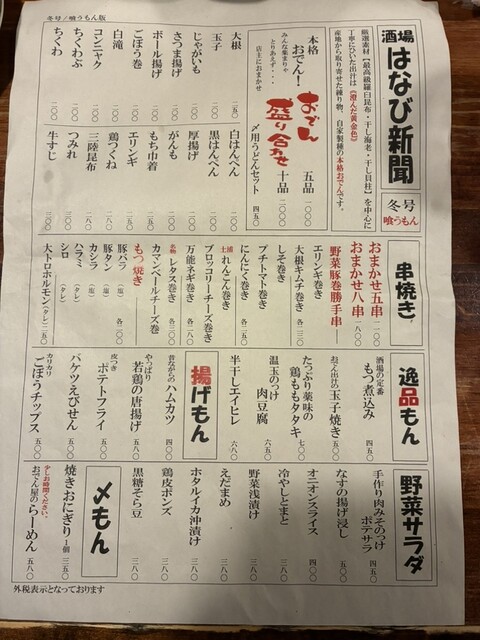 冬号/喰うもん版
酒場
はなび新聞
冬号
喰うもん
厳選素材【最高級羅臼昆布・干し海老・干し貝柱】を中心に
丁寧にひいた出汁は《澄んだ黄金色》
産地から取り寄せた練り物、自家製種の本格おでんです。
本格
おでん!
みんな集まりゃ
とりあえず…
店主におまかせ
おでん
盛り合わせ
五品 一〇〇〇
十品 二〇〇〇
〆用うどんセット 四五〇
大根 二五〇
玉子
じゃがいも
さつま揚げ
ボール揚げ
ごぼう巻
白滝
コンニャク
ちくわぶ
ちくわ 二〇〇
白はんぺん
黒はんぺん
厚揚げ
がんも
もち巾着
エリンギ
鶏つくね
三陸昆布
つみれ
牛すじ
串焼き
おまかせ五串 一〇〇〇
おまかせ八串 一八〇〇
野菜豚巻勝手串
エリンギ巻き
大根キムチ巻き
しそ巻き
プチトマト巻き
にんにく巻き
土浦 れんこん巻き
ブロッコリーチーズ巻き
万能ネギ巻き
名物 レタス巻き
カマンベールチーズ巻
もつ焼き
豚バラ(塩)
豚タン(塩)
カシラ(塩)
ハラミ(タレ)
シロ(タレ)
大トロホルモン(タレ)二五〇
逸品もん
酒場の定番
もつ煮込み 四五〇
おでん出汁の玉子焼き 五〇〇
たっぷり薬味の
鶏ももタタキ 七〇〇
温玉のっけ
肉豆腐 六五〇
半干しエイヒレ 六八〇
揚げもん
昔ながらのハムカツ 四〇〇
やっぱり
若鶏の唐揚げ 五八〇
皮つき
ポテトフライ 五〇〇
バケツえびせん 五〇〇
カリカリ
ごぼうチップス 五〇〇
野菜サラダ
手作り肉みそのっけ
ポテサラ 四五〇
なすの揚げ浸し 五〇〇
オニオンスライス 四〇〇
冷やしとまと 三八〇
野菜浅漬け 三八〇
えだまめ 三八〇
ホタルイカ沖漬け 三八〇
鶏皮ポンズ 三八〇
黒糖そら豆 三八〇
〆もん
焼きおにぎり 1個 三五〇
少しお時間ください。
おでん屋のらーめん 五八〇
外税表示となっております